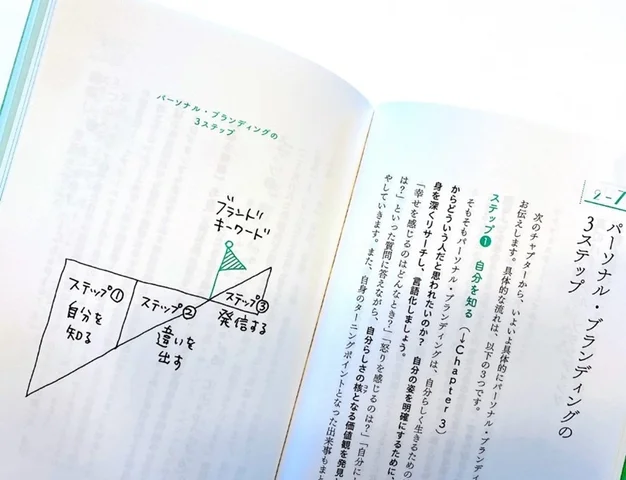 2-1
パーソナル・ブランディングの
3ステップ
次のチャプターから、いよいよ具体的にパーソナル・ブランディ
お伝えします。具体的な流れは、以下の3つです。
ステップ❶ 自分を知る（→Chapter 3）
そもそもパーソナル・ブランディングは、自分らしく生きるための
からどういう人だと思われたいのか？ 自分の姿を明確にするために、
身を深くリサーチし、言語化しましょう。
「幸せを感じるのはどんなとき？」「怒りを感じるのは？」「自分に
は？」といった質問に答えながら、自分らしさの核となる価値観を発見
やしていきます。また、自身のターニングポイントとなった出来事もま
パーソナル・ブランディングの
3ステップ
ブランド
キーワード
ステップ①
自分を
知る
ステップ②
違いを
出す
ステップ③
発信する